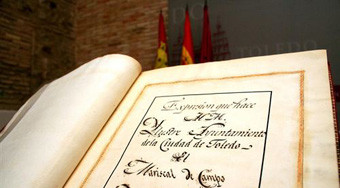 TOLEDO
Expresion que hace
M.N.
Yllustre Ayuntamiento
de la Ciudad de Toledo
Al
Mariscal de Campo